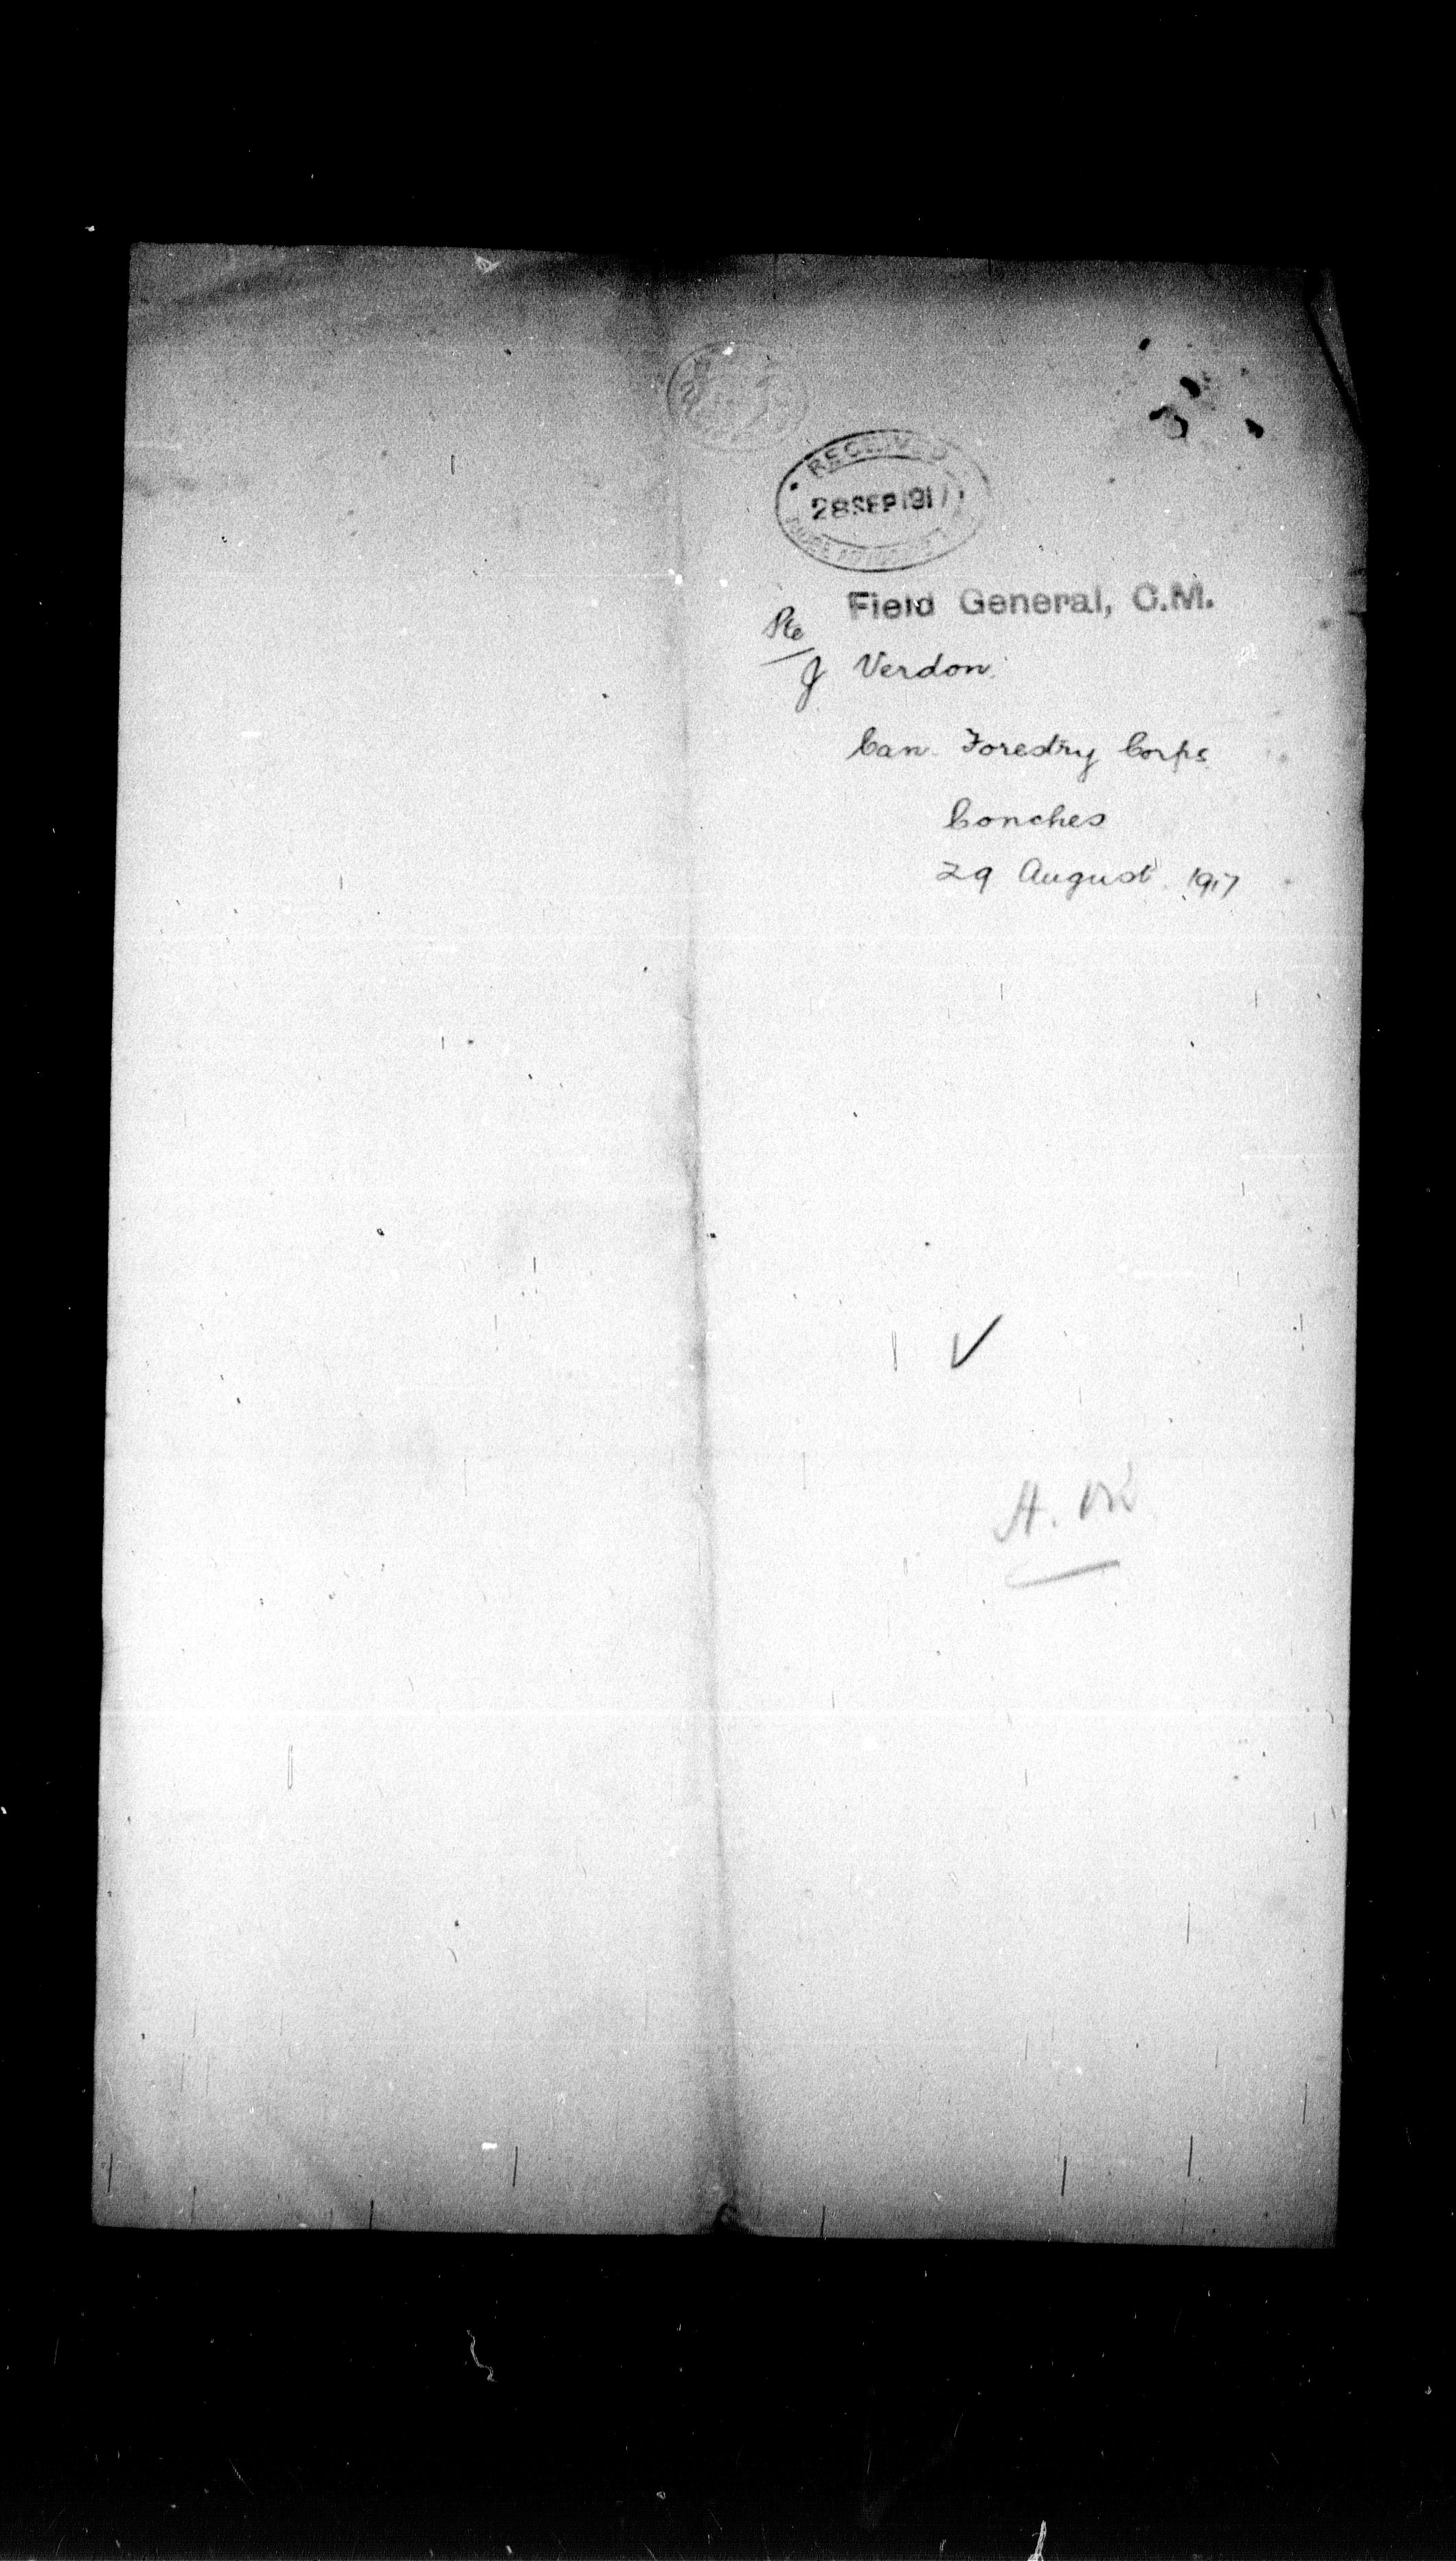 RECEIVED
28 SEP 1917
Field General, C.M.
Pte
J Verdon
Can. Forestry Corps
Conches
29 August 1917